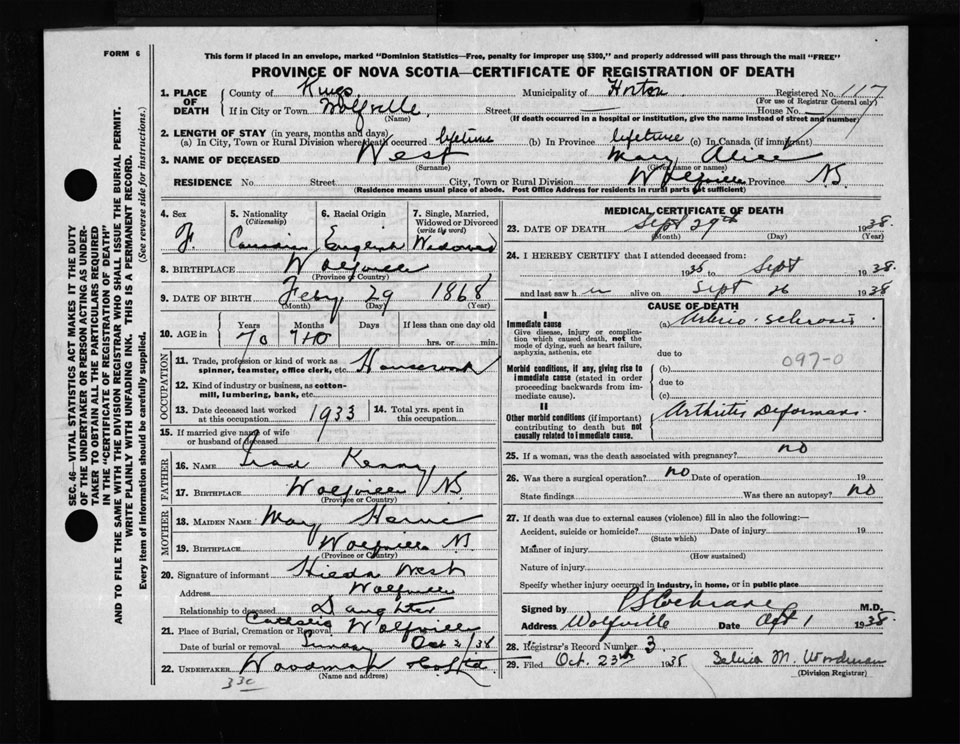 FORM 6
This form if placed in an envelope, marked "Dominion Statistics—Free, penalty for improper use $300," and properly addressed will pass through the mail "FREE"
PROVINCE OF NOVA SCOTIA—CERTIFICATE OF REGISTRATION OF DEATH
SEC. 46—VITAL STATISTICS ACT MAKES IT THE DUTY
OF THE UNDERTAKER OR PERSON ACTING AS UNDER-
TAKER TO OBTAIN ALL THE PARTICULARS REQUIRED
IN THE "CERTIFICATE OF REGISTRATION OF DEATH"
AND TO FILE THE SAME WITH THE DIVISION REGISTRAR WHO SHALL ISSUE THE BURIAL PERMIT.
WRITE PLAINLY WITH UNFADING INK. THIS IS A PERMANENT RECORD.
Every item of information should be carefully supplied. (See reverse side for instructions.)
1. PLACE OF DEATH County of Kings Municipality of Horton Registered No. 117
(For use of Registrar General only)
If in City or Town Wolfville Street — House No. —
(Name) (If death occurred in a hospital or institution, give the name instead of street and number)
2. LENGTH OF STAY (in years, months and days)
(a) In City, Town or Rural Division where death occurred lifetime (b) In Province lifetime (c) In Canada (if immigrant)
3. NAME OF DECEASED West Mary Alice
(Surname) (Given name or names)
RESIDENCE No. Street City, Town or Rural Division Wolfville Province N.S.
(Residence means usual place of abode. Post Office Address for residents in rural parts not sufficient)
4. Sex F.
5. Nationality (Citizenship) Canadian
6. Racial Origin English
7. Single, Married, Widowed or Divorced (write the word) Widowed
8. BIRTHPLACE Wolfville
(Province or Country)
9. DATE OF BIRTH Feby 29 1868
(Month) (Day) (Year)
10. AGE in Years 70 Months 7 Days If less than one day
hrs. or min.
OCCUPATION
11. Trade, profession or kind of work as spinner, teamster, office clerk, etc. Housework
12. Kind of industry or business, as cotton-mill, lumbering, bank, etc.
13. Date deceased last worked at this occupation 1933
14. Total yrs. spent in this occupation
15. If married give name of wife or husband of deceased
FATHER
16. NAME Kenny
17. BIRTHPLACE Wolfville N.S.
(Province or Country)
MOTHER
18. MAIDEN NAME May
19. BIRTHPLACE Wolfville N.S.
(Province or Country)
20. Signature of informant Hilda West
Address Wolfville
Relationship to deceased Daughter
21. Place of Burial, Cremation or Removal Catholic Wolfville
Date of burial or removal Sunday Oct 2/38
22. UNDERTAKER Woodman
(Name and address)
330
MEDICAL CERTIFICATE OF DEATH
23. DATE OF DEATH Sept 29th 1938
(Month) (Day) (Year)
24. I HEREBY CERTIFY that I attended deceased from:
1936 to Sept 1938.
and last saw her alive on Sept 26 1938
CAUSE OF DEATH
I
Immediate cause
Give disease, injury or complication which caused death, not the mode of dying, such as heart failure, asphyxia, asthenia, etc
(a) Arterio-sclerosis.
due to
Morbid conditions, if any, giving rise to immediate cause (stated in order proceeding backwards from immediate cause).
(b) 097-0
due to
(c)
II
Other morbid conditions (if important) contributing to death but not causally related to immediate cause.
Arthritis Deformans.
25. If a woman, was the death associated with pregnancy? no
26. Was there a surgical operation? no Date of operation 19
State findings Was there an autopsy? no
27. If death was due to external causes (violence) fill in also the following:—
Accident, suicide or homicide? Date of injury 19
(State which)
Manner of injury
(How sustained)
Nature of injury
Specify whether injury occurred in industry, in home, or in public place
Signed by P S Cochrane M.D.
Address Wolfville Date Oct 1 1938.
28. Registrar's Record Number 3
29. Filed Oct. 23rd 1938 M. Woodman
(Division Registrar)